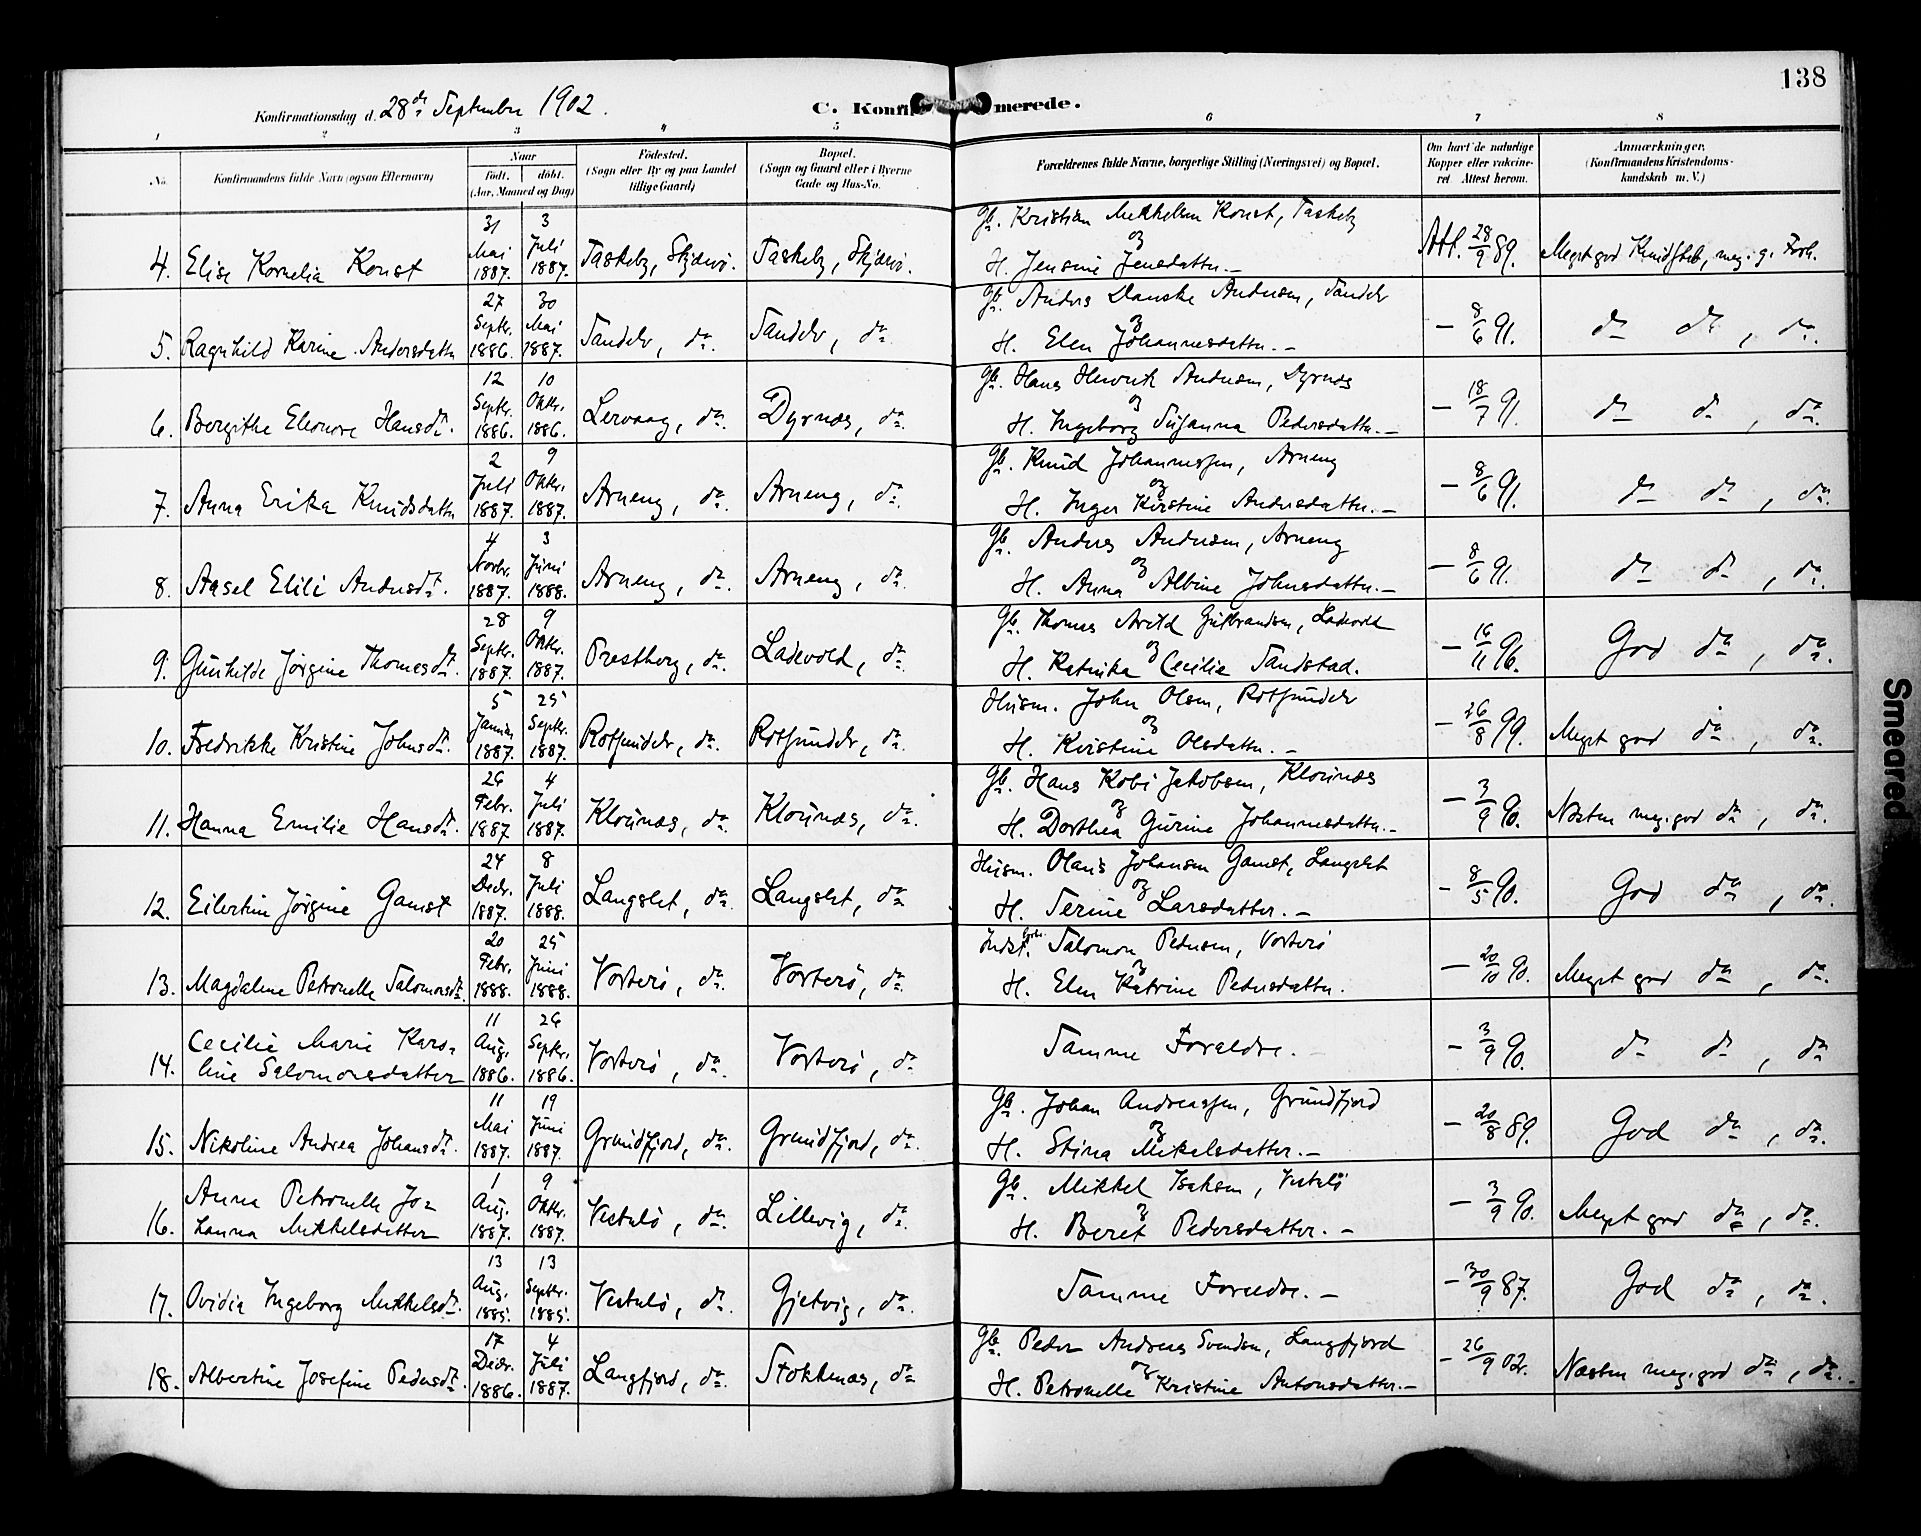 138
Konfirmationsdag d. 28de September 1902.
C. Konfirmerede.
1 2 3 4 5 6 7 8
No. Konfirmandens fulde Navn (ogsaa Efternavn) Naar født. døbt. (Aar, Maaned og Dag) Fødested. (Sogn eller By og paa Landet tillige Gaard) Bopæl. (Sogn og Gaard eller i Byerne Gade og Hus-No. Forældrenes fulde Navne, borgerlige Stilling (Næringsvei) og Bopæl. Om havt de naturlige Kopper eller vaccineret Attest herom. Anmærkninger. (Konfirmandens Kristendomskundskab m. V.)
4. Elise Kornelia Konst 31 Mai 1887. 3 Juli 1887. Taskeby, Skjærvø. Taskeby, Skjærvø. Gb. Kristian Mikkelsen Konst, Taskeby og H. Jensine Jensdatter. – Att. 28/9 89. Meget god Kundskb, meg. g. Forh.
5. Ragnhild Karine Andersdatter 27 Septbr. 1886. 30 Mai 1887. Sandør, do. Sandør, do. Gb. Anders Danske Andersen, Sandør og H. Elen Johannesdatter. – – 8/6 91. do do, do.
6. Bergithe Eleonore Hansdt. 12 Septbr. 1886. 10 Oktbr. 1886. Lervaag, do. Dyrnæs, do. Gb. Hans Henrik Andersen, Dyrnæs og H. Ingeborg Susanna Pedersdatter. – – 18/7 91. do do, do.
7. Anna Erika Knudsdatter 2 Juli 1887. 9 Oktbr. 1887. Arneng, do. Arneng, do. Gb. Knud Johannessen, Arneng og H. Inger Kirstine Andersdatter. – – 8/6 91. do do, do.
8. Aasel Elili Andersdt. 4 Novbr. 1887. 3 Juni 1888. Arneng, do. Arneng, do. Gb. Anders Andersen, Arneng og H. Anna Albine Johnsdatter. – – 8/6 91. do do, do.
9. Gunhilde Jørgine Thomasdt. 28 Septbr. 1887. 9 Oktbr. 1887. Prestberg, do. Ladevold, do. Gb. Thomas Arild Gulbrandsen, Ladevold og H. Katinka Cecilie Sandstad. – 16/11 96. God do, do.
10. Fredrikke Kristine Johnsdt. 5 Januar 1887. 25 Septbr. 1887. Rotsundelv, do. Rotsundelv, do. Husm. John Olsen, Rotsundelv og H. Kristine Olsdatter. – – 26/8 99. Meget god do, do.
11. Hanna Emilie Hansdt. 26 Febr. 1887. 4 Juli 1887. Klovnæs, do. Klovnæs, do. Gb. Hans Kobi Jakobsen, Klovnæs og H. Dorthea Gurine Johannesdatter. – – 3/9 90. Næsten meg. god do, do.
12. Eilertine Jørgine Gamst 24 Decbr. 1887. 8 Juli 1888. Langslet, do. Langslet, do. Husm. Olaus Johansen Gamst, Langslet og H. Serine Larsdatter. – – 8/5 90. God do, do.
13. Magdalene Petronelle Salomonsdt. 20 Febr. 1888. 25 Juni 1888. Vorterø, do. Vorterø, do. Indst. Salomon Pedersen, Vorterø og H. Elen Katrine Pedersdatter. – 20/10 90. Meget god do, do.
14. Cecilie Marie Karoline Salomonsdatter 11 Aug. 1886. 26 Septbr. 1886. Vorterø, do. Vorterø, do Samme Forældre. – – 3/9 90. do do, do
15. Nikoline Andrea Johansdt. 11 Mai 1887. 19 Juni 1887. Grundfjord, do. Grundfjord, do. Gb. Johan Andreassen, Grundfjord og H. Stina Mikelsdatter. – – 20/8 89. God do, do.
16. Anna Petronelle Johanna Mikkelsdatter 1 Aug. 1887. 9 Oktbr. 1887. Vestulø, do. Lillevig, do. Gb. Mikkel Isaksen, Vestulø og H. Beret Pedersdatter. – – 3/9 90. Meget god do, do.
17. Ovidia Ingeborg Mikkelsdt. 13 Aug. 1885. 13 Septbr. 1885. Vestulø, do. Gjetvig, do. Samme Forældre. – – 30/9 87. God do, do.
18. Albertine Josefine Pedersdt. 17 Decbr. 1886. 4 Juli 1887. Langfjord, do. Stokkenæs, do Gb. Peder Andreas Svendsen, Langfjord og H. Petronelle Kristine Antonsdatter. – – 26/9 02. Næsten meg. god do, do.
Smeared